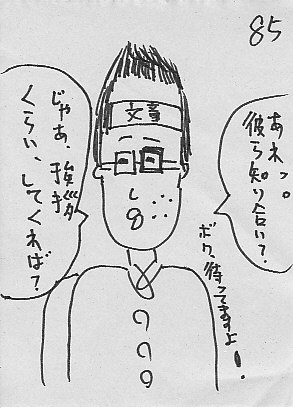 85
あれッ。
彼ら知り合い?
ボク、待ってますよ!
文章
じゃあ、挨拶
くらい、してくれば?